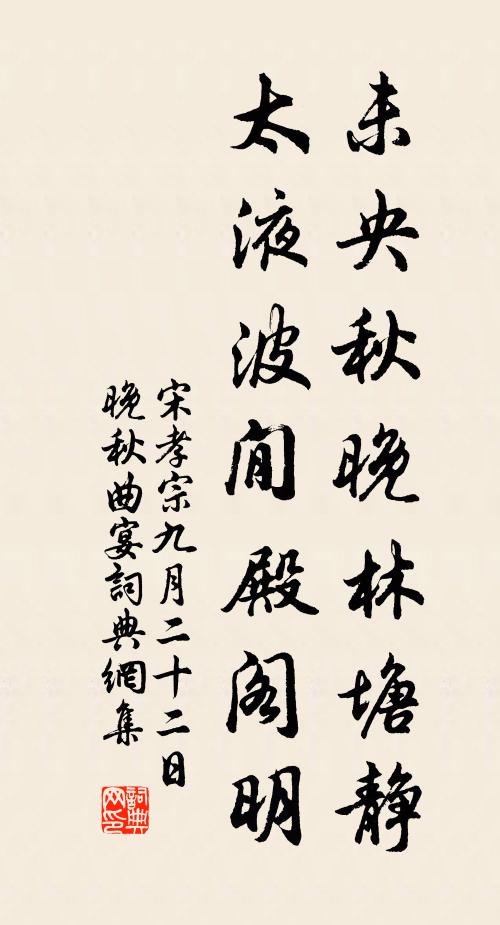 未央秋晚林塘静
太液波间殿阁明
宋孝宗九月二十二日
晚秋曲宴詞典網集
詞典
网印